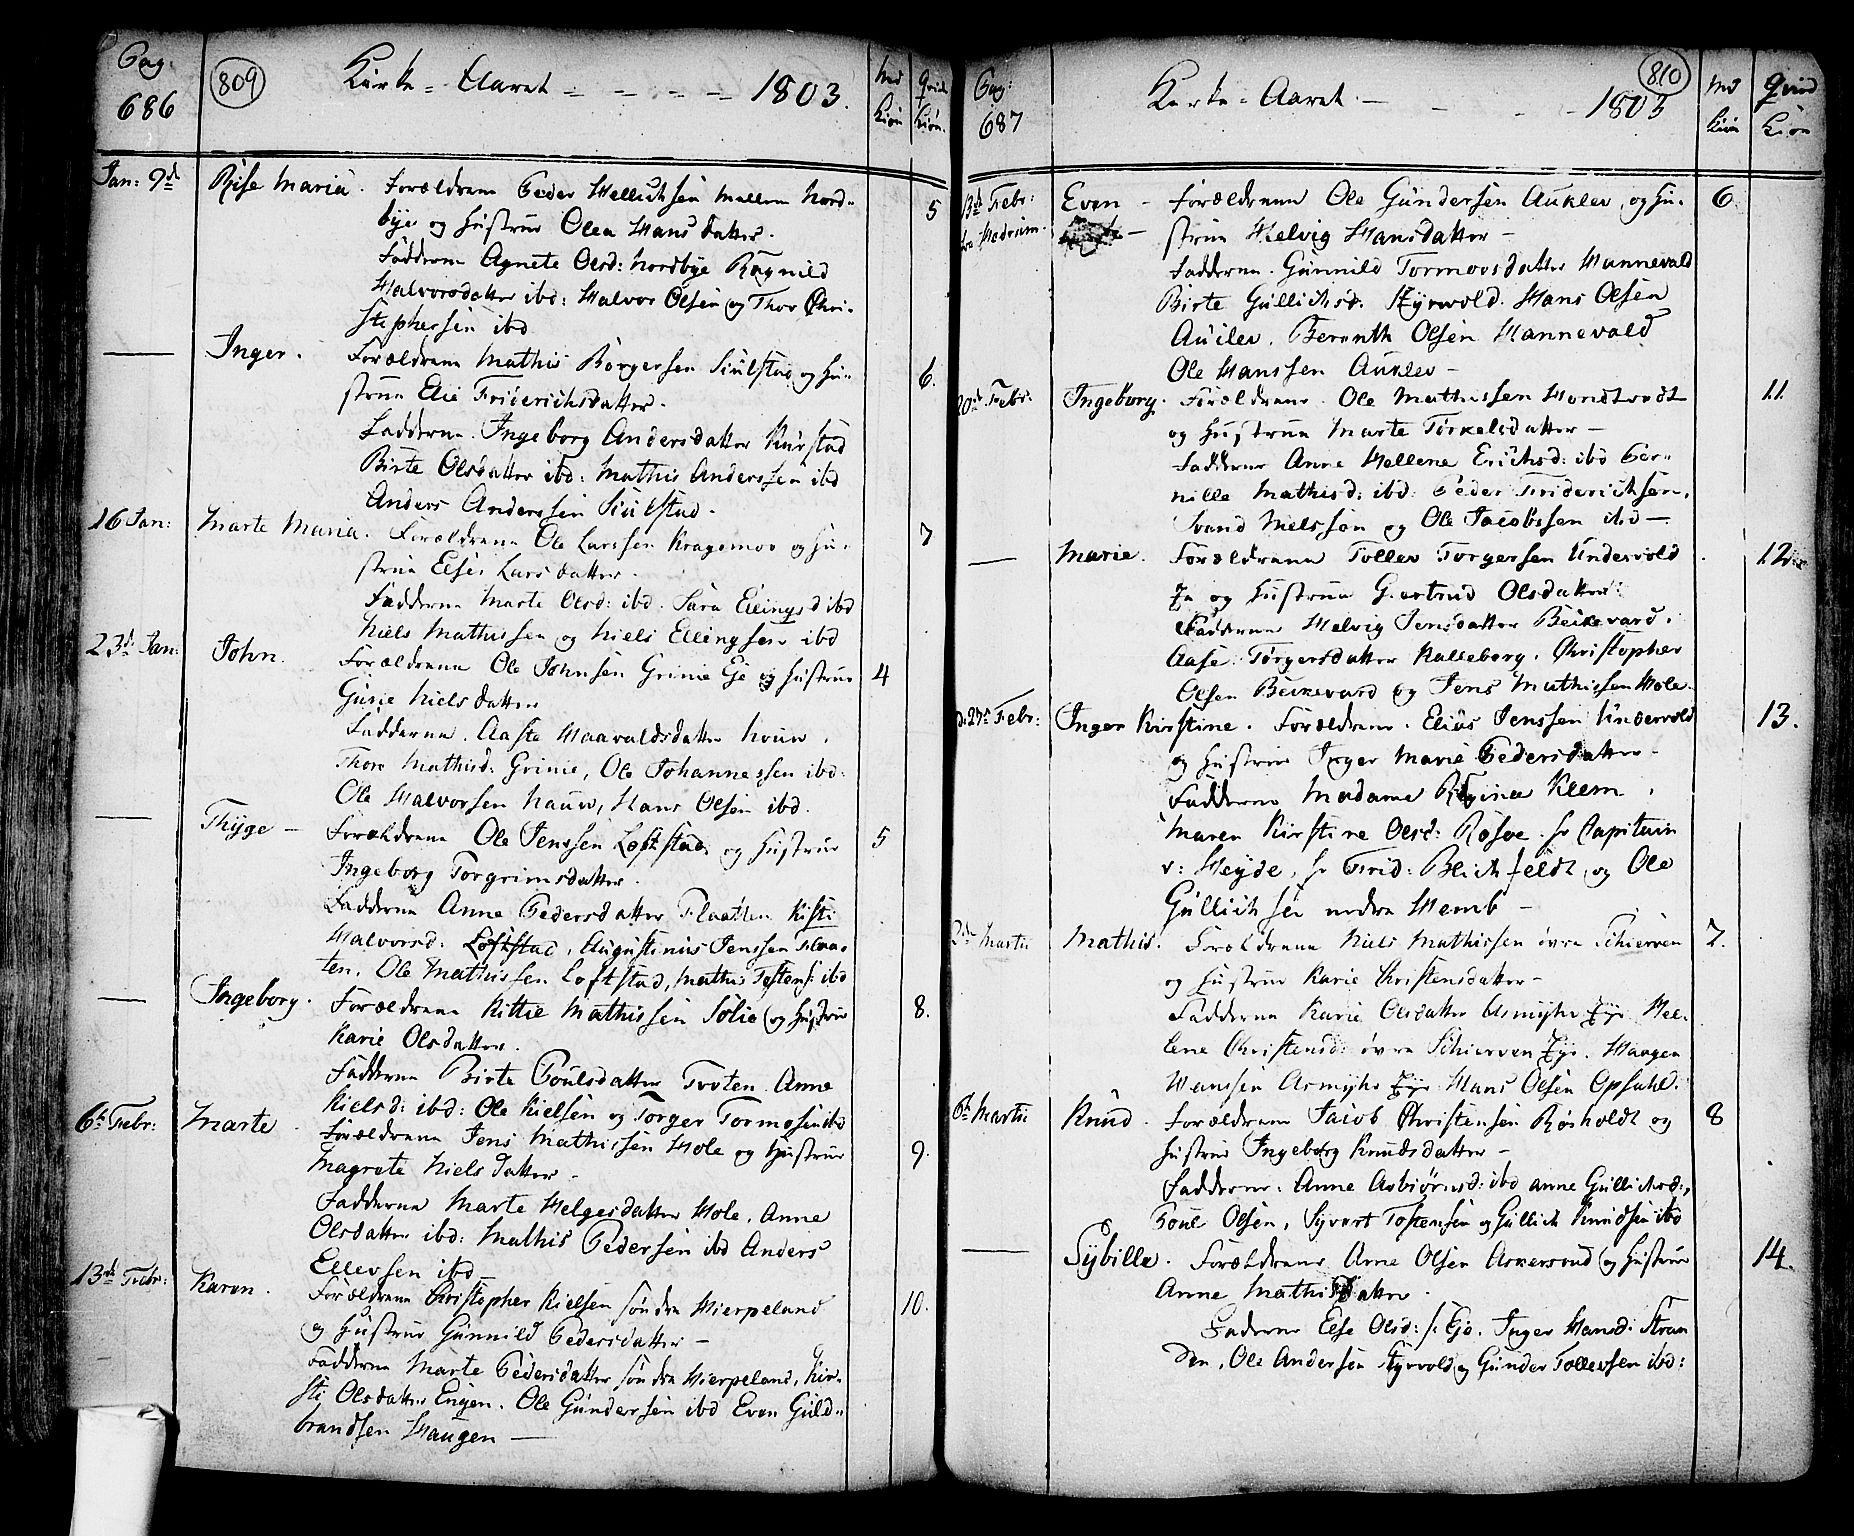 Pag: 686
809
Kirke-Aaret - - - - 1803.
Md Kiön
Qvinde Kiön.
Jan: 9d Rise Maria. Forældrene Peder Hellichsen mellem Nord-
bye og Hustrue Olea Hans datter.
Fadderne Agnete Olsd: Nordbye Ragnild
Halvorsdatter ibd: Halvor Olsen og Thor Chri-
stophersen ibd
5
Inger. Forældrene Mathis Börgersen Siulstad og Hu-
strue Elie Friderichsdatter.
6.
Fadderne. Ingeborg Andersdatter Kirstad
Birte Olsdatter ibd: Mathis Anderssen ibd
Anders Anderssen Siulstad.
16 Jan: Marte Maria. Forældrene Ole Larssen Kragemoe og Hu-
strue Else Lars datter.
7
Fadderne Marte Olsd: ibd. Sara Ellingsd ibd
Niels Mathissen og Niels Ellingsen ibd
23d Jan: John. Forældrene Ole Johnsen Grinie Eje og Hustrue
Gurie Niels datter
4
Fadderne. Aaste Haavaldsdatter Houw.
Thore Mathisd: Grinie, Ole Johannessen ibd:
Ole Halvorsen Hauw, Hans Olsen ibd.
Thÿge - Forældrene Ole Jenssen Loftstad, og Hustrue
Ingeborg Torgrimsdatter.
5
Fadderne Anne Pedersdatter Flaatten Kisti
Halvorsd: Loftstad, Augustinus Jenssen Flaa-
ten, Ole Mathissen Loftstad, Mathis Testens: ibd
Ingeborg. Forældrene Kittie Mathissen Solie og Hustrue
Karie Olsdatter.
8.
Fadderne Birte Poulsdatter Troten. Anne
Kielsd: ibd: Ole Kielsen og Torger Tormosen ibd
6t Febr: Marte. Forældrene Jens Mathissen Hole og Hustrue
Magrete Niels datter -
9.
Fadderne Marte Helgesdatter Hole, Anne
Olsdatter ibd: Mathis Pedersen ibd Anders
Ellevsen ibd
13de Febr: Karen. Forældrene Christopher Kielsen söndre Hierpeland
og Hustrue Gunnild Pedersdatter -
10.
Fadderne Marte Pedersdatter söndre Hierpeland, Kir-
sti Olsdatter Engen. Ole Gundersen ibd Even Guld-
brandsen Haugen -
Pag: 687
810
Kirke-Aaret - - - 1803
Md Kiön
Qvind Kiön
13de Febr: Even - Forældrene Ole Gundersen Auklev, og Hu-
strue Helvig Hansdatter -
6.
Fadderne. Gunnild Tormovsdatter Hannevald
Birte Gullichsd. Stÿrvold. Hans Olsen
Auclev. Bernth Olsen Hannevald
Ole Hanssen Auklev -
20de Febr: Ingeborg. Forældrene. Ole Mathissen Hondtvedt
og Hustrue Marte Torkelsdatter -
11.
Fadderne Anne Hellene Erichsd: ibd Per-
nille Mathisd: ibd: Peder Friderichsen,
Svend Nielssøn og Ole Jacobssen ibd -
Marie. Forældrene Tollev Torgersen Undersvold
Eje og Hustrue Giertrud Olsdatter:
12.
Fadderne Helvig Jensdatter Beckevard.
Aase Torgersdatter Kalleborg. Christopher
Olsen Beckevard og Jens Mathissen Hole.
d: 27t Febr: Inger Kirstine. Forældrene. Elias Jenssen Undersvold
og Hustrue Inger Marie Pedersdatter -
13.
Fadderne Madame Regine Klem,
Maren Kirstine Olsd: Røsoe. Hr Capitain
v: Heyde, Hr Frid: Blichfeldt, og Ole
Gullichsen nedre Hemb -
2de Martii Mathis. Forældrene Niels Mathissen övre Schierven
og Hustrue Karie Christensdatter -
7.
Fadderne Karie Olsdatter Asmÿhr Eje Hel-
lene Christensd: övre Schierven Eje. Haagen
Hanssen Asmÿhr Eje Hans Olsen Opsahl.
6t Martii Knud. Forældrene Jacob Christensen Røsholdt og
Hustrue Ingeborg Knudsdatter -
8
Fadderne. Anne Asbiörnsd: ibd Anne Gullichsd:,
Poul Olsen, Sÿvert Tostensen og Gullich Knudsen ibd
Sÿbille. Forældrene Arne Olsen Askersrud og Hustrue
Anne Mathisdatter.
14.
Fadderne Else Olsd: s: Eje. Inger Hansd: Stran
den, Ole Andersen Stÿrvold og Gunder Tollevsen ibd: